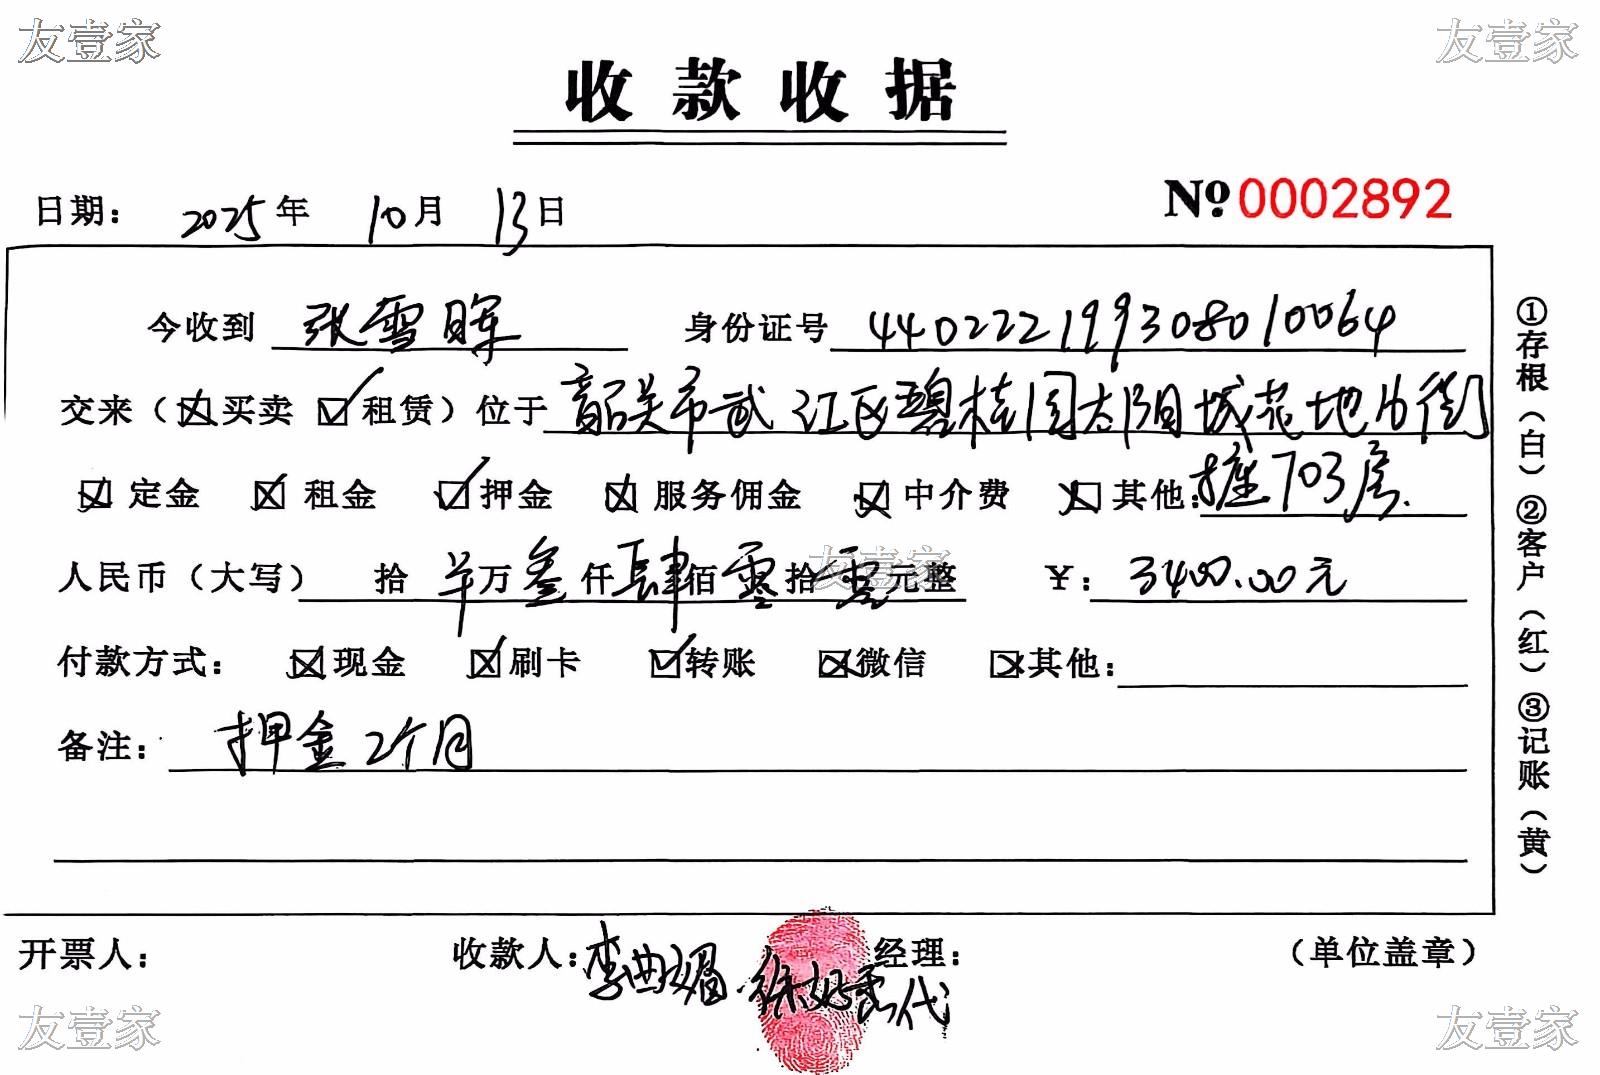 友壹家 友壹家
收款收据
日期： 2025年 10月 13日 №0002892
今收到 张雪晖 身份证号 440222199308010064
交来（☒买卖 ☑租赁）位于 韶关市武江区碧桂园太阳城花地 街
☒定金 ☒租金 ☑押金 ☒服务佣金 ☒中介费 ☒其他： 座703房.
人民币（大写） 拾 万叁仟肆佰零拾零元整 ￥：3400.00元
友壹家
付款方式： ☒现金 ☒刷卡 ☑转账 ☒微信 ☒其他：
备注： 押金2个月
①存根（白）②客户（红）③记账（黄）
开票人： 收款人：李 媚. 徐 代 经理： （单位盖章）
友壹家 友壹家